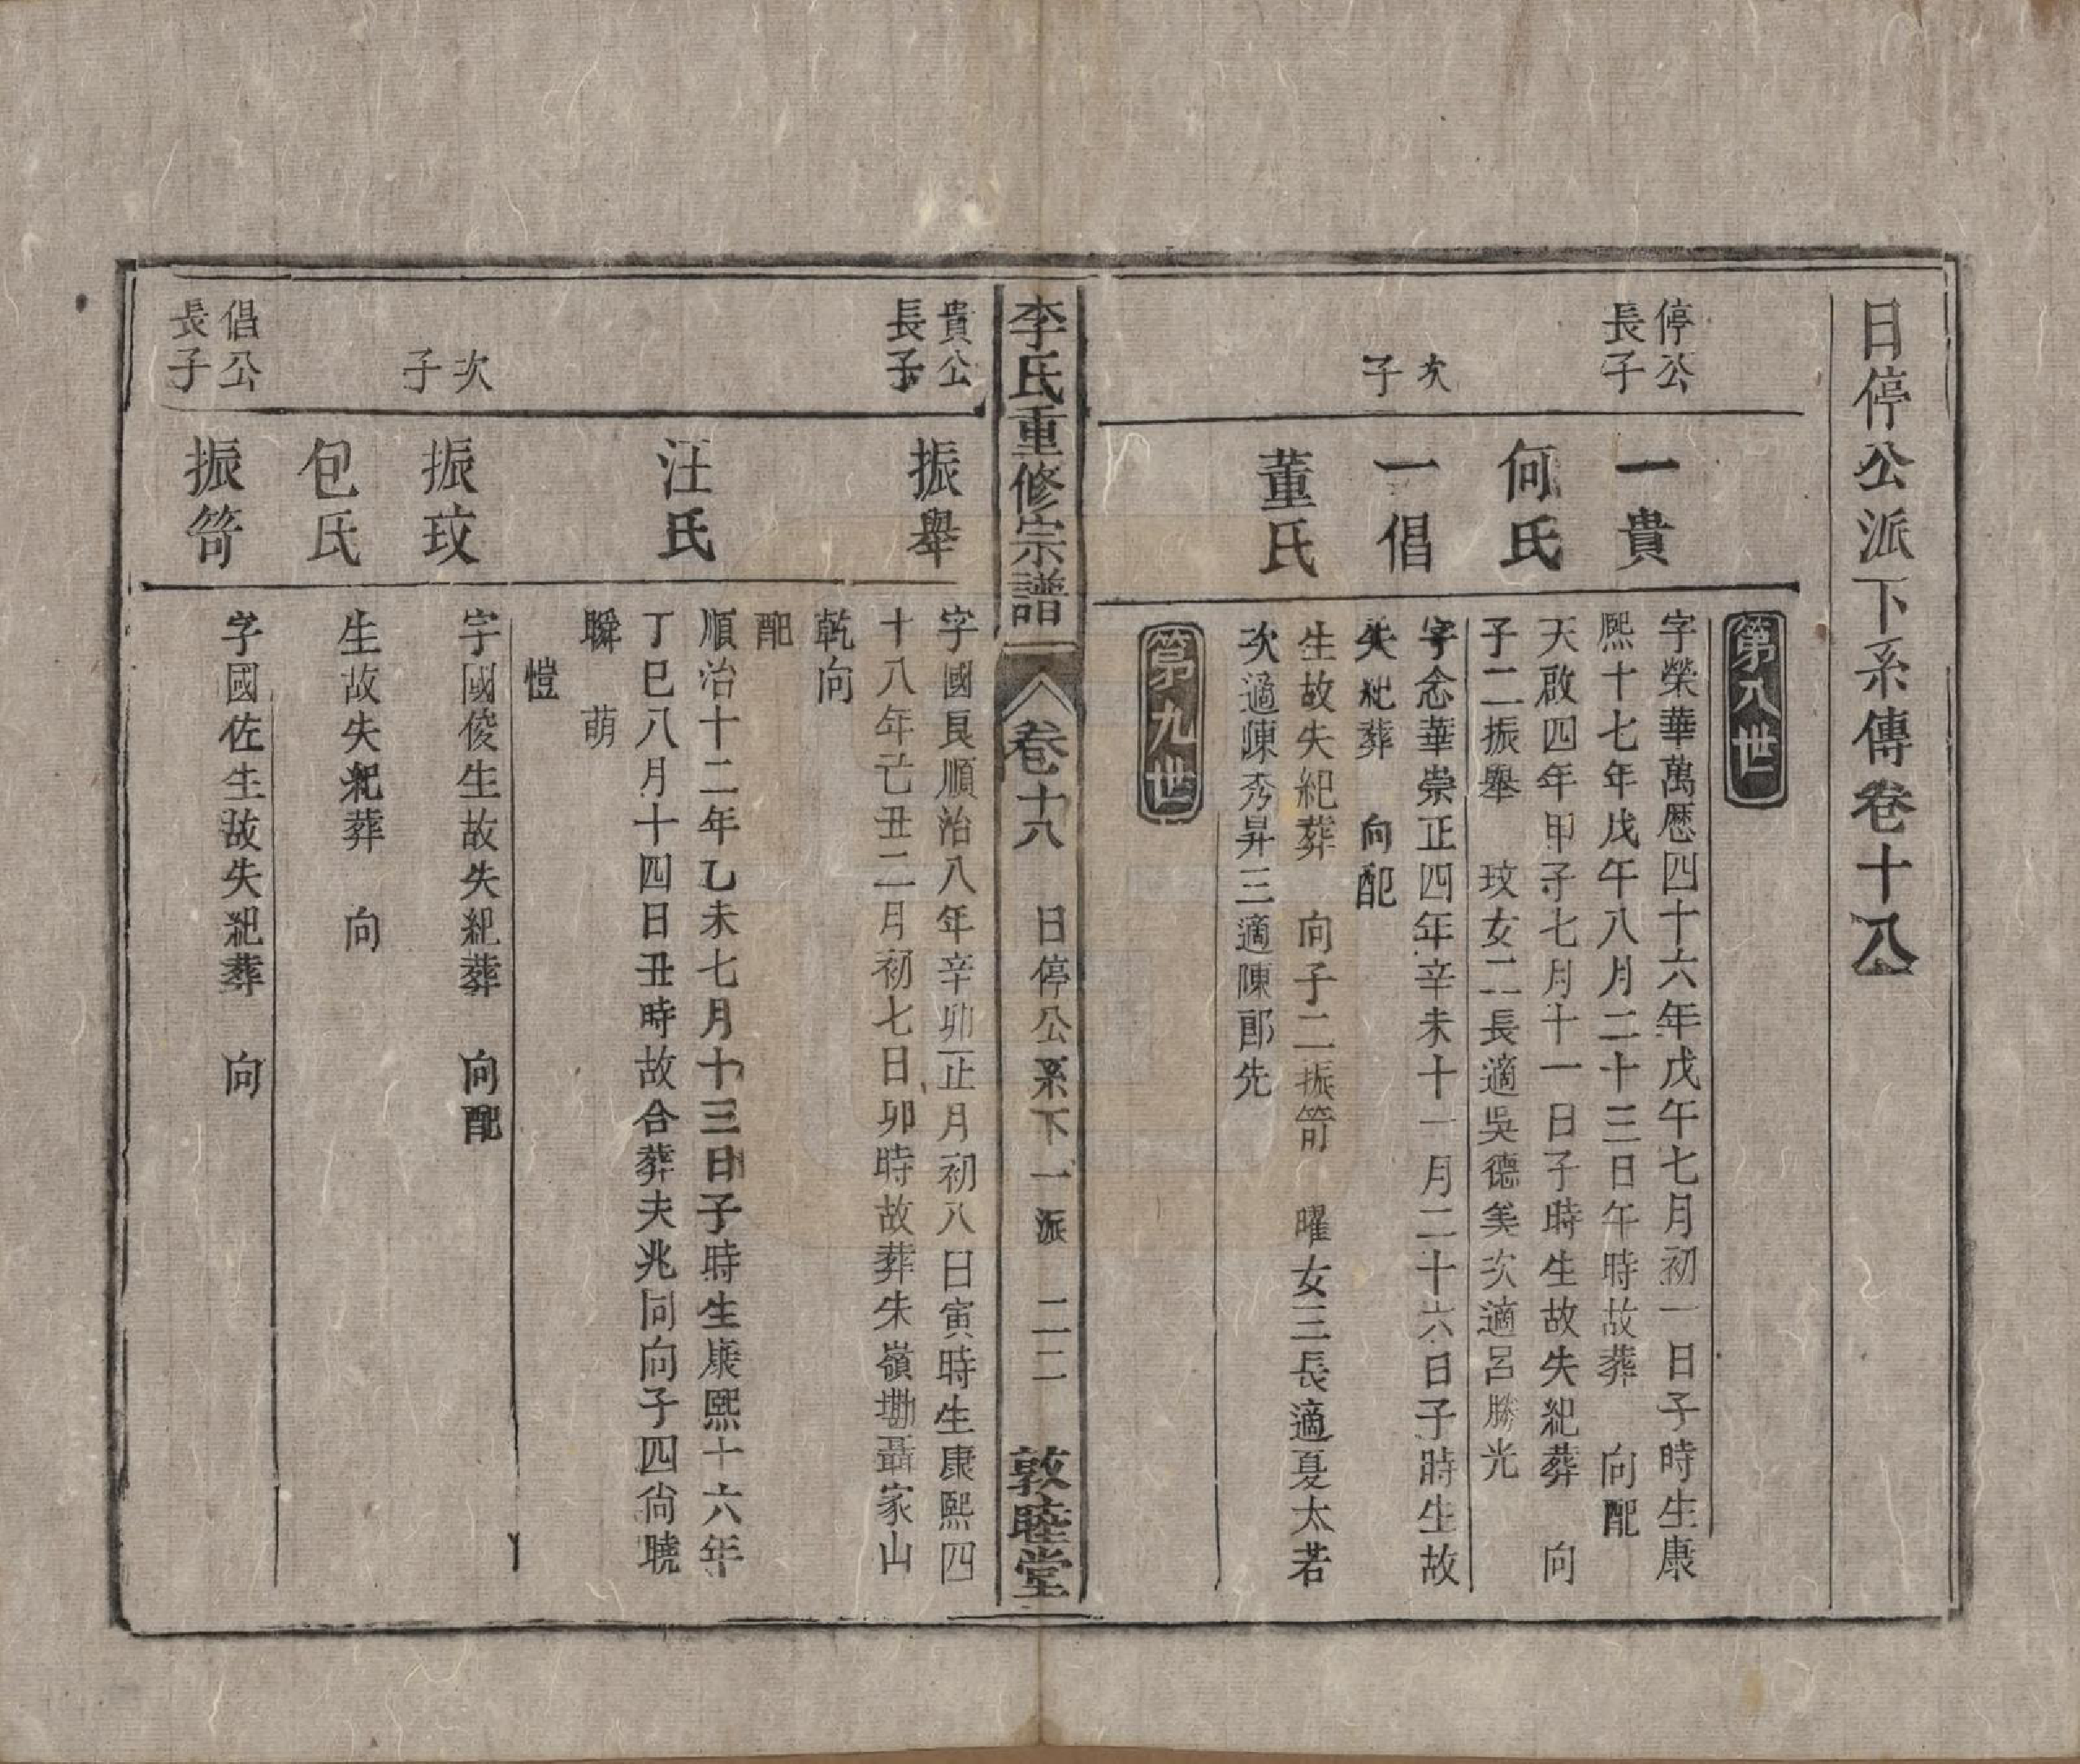 日停公派下系傳卷十八
第八世
停公
長子
一貴
字榮華萬歷四十六年戊午七月初一日子時生康
熙十七年戊午八月二十三日午時故葬　向配
何氏
天啟四年甲子七月十一日子時生故失紀葬　向
子二振舉　玟女二長適吳德美次適呂勝光
次
子
一倡
字念華崇正四年辛未十一月二十六日子時生故
失紀葬　向配
董氏
生故失紀葬　向子二振笴　曜女三長適夏太若
次適陳秀昇三適陳郎先
第九世
李氏重修宗譜　卷十八　日停公系下一派　二二　敦睦堂
貴公
長子
振舉
字國良順治八年辛卯正月初八日寅時生康熙四
十八年己丑二月初七日卯時故葬朱嶺塝聶家山
乾向
配
汪氏
順治十二年乙未七月十三日子時生康熙十六年
丁巳八月十四日丑時故合葬夫兆同向子四尚曉
聯　萌
愷
次
子
振玟
字國俊生故失紀葬　向配
包氏
生故失紀葬　向
倡公
長子
振笴
字國佐生故失紀葬　向